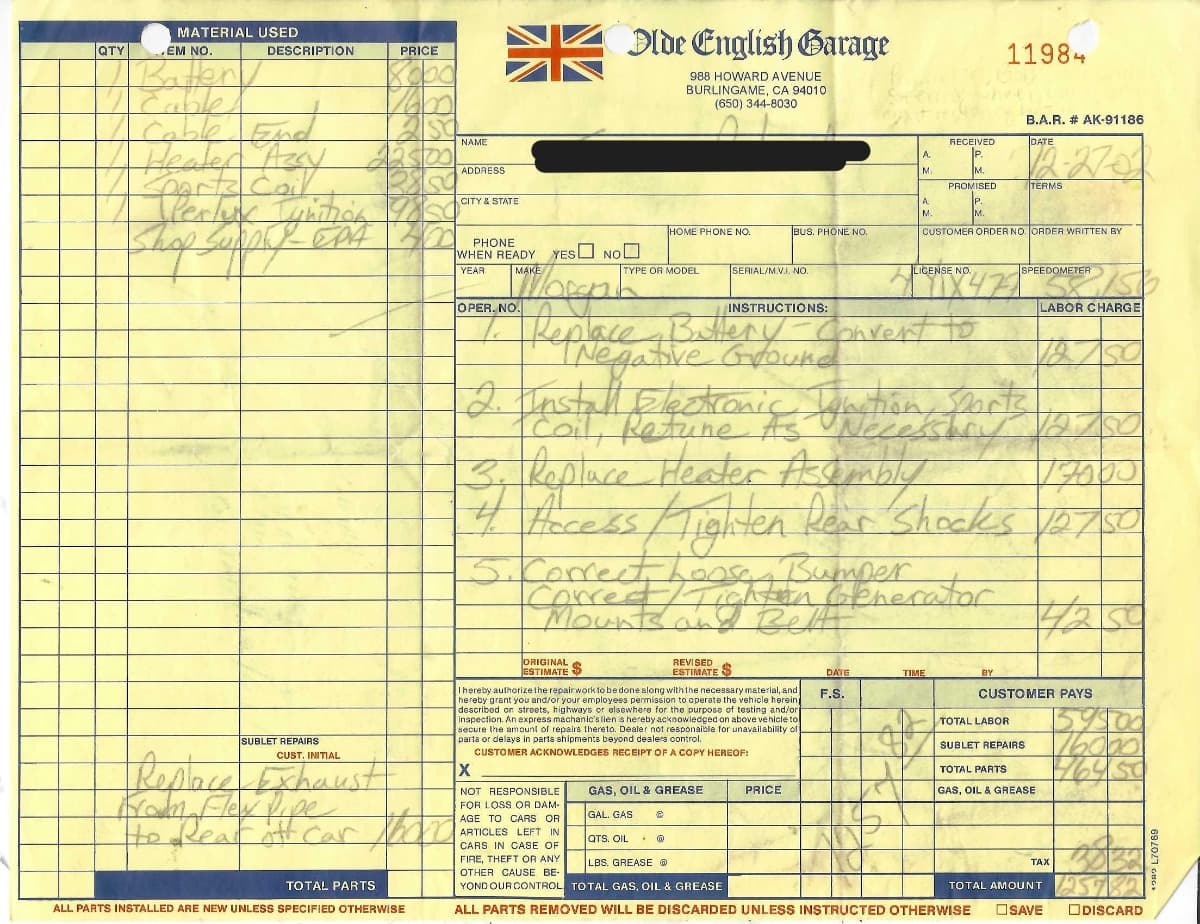 MATERIAL USED
QTY EM NO. DESCRIPTION PRICE
1 Battery 80 00
1 Cable 16 00
1 Cable End 2 50
1 Heater Assy 225 00
1 Sports Coil 38 50
1 Perlux Ignition 98 50
Shop Supply - EPA 4 00
SUBLET REPAIRS
CUST. INITIAL
Replace Exhaust
From Flex Pipe
to Rear of car 160 00
TOTAL PARTS
ALL PARTS INSTALLED ARE NEW UNLESS SPECIFIED OTHERWISE
Olde English Garage
988 HOWARD AVENUE
BURLINGAME, CA 94010
(650) 344-8030
11984
B.A.R. # AK-91186
NAME
ADDRESS
CITY & STATE
RECEIVED
A. M. P. M.
DATE
12-27-02
PROMISED
A. M. P. M.
TERMS
PHONE WHEN READY YES NO
HOME PHONE NO.
BUS. PHONE NO.
CUSTOMER ORDER NO.
ORDER WRITTEN BY
YEAR MAKE TYPE OR MODEL SERIAL/M.V.I. NO. LICENSE NO. SPEEDOMETER
Morgan 58,156
OPER. NO. INSTRUCTIONS: LABOR CHARGE
1. Replace Battery - Convert to
Negative Ground 127 50
2. Install Electronic Ignition, Sports
Coil, Retune As Necessary 127 50
3. Replace Heater Assembly 170 00
4. Access / Tighten Rear Shocks 127 50
5. Correct Loose Bumper
Correct / Tighten Generator
Mounts and Belt 42 50
ORIGINAL ESTIMATE $ REVISED ESTIMATE $ DATE TIME BY
I hereby authorize the repair work to be done along with the necessary material, and
hereby grant you and/or your employees permission to operate the vehicle herein
described on streets, highways or elsewhere for the purpose of testing and/or
inspection. An express machanic's lien is hereby acknowledged on above vehicle to
secure the amount of repairs thereto. Dealer not responsible for unavailability of
parts or delays in parts shipments beyond dealers control.
CUSTOMER ACKNOWLEDGES RECEIPT OF A COPY HEREOF:
X
NOT RESPONSIBLE
FOR LOSS OR DAM-
AGE TO CARS OR
ARTICLES LEFT IN
CARS IN CASE OF
FIRE, THEFT OR ANY
OTHER CAUSE BE-
YOND OUR CONTROL
GAS, OIL & GREASE PRICE
GAL. GAS @
QTS. OIL @
LBS. GREASE @
TOTAL GAS, OIL & GREASE
F.S.
CUSTOMER PAYS
TOTAL LABOR 595 00
SUBLET REPAIRS 160 00
TOTAL PARTS 464 50
GAS, OIL & GREASE
TAX 38 32
TOTAL AMOUNT 1257 82
ALL PARTS REMOVED WILL BE DISCARDED UNLESS INSTRUCTED OTHERWISE SAVE DISCARD